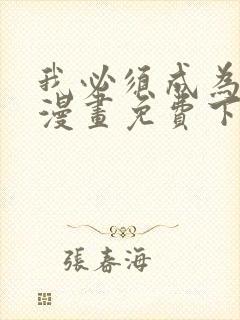 我必须成为
漫畫免費下
張春海